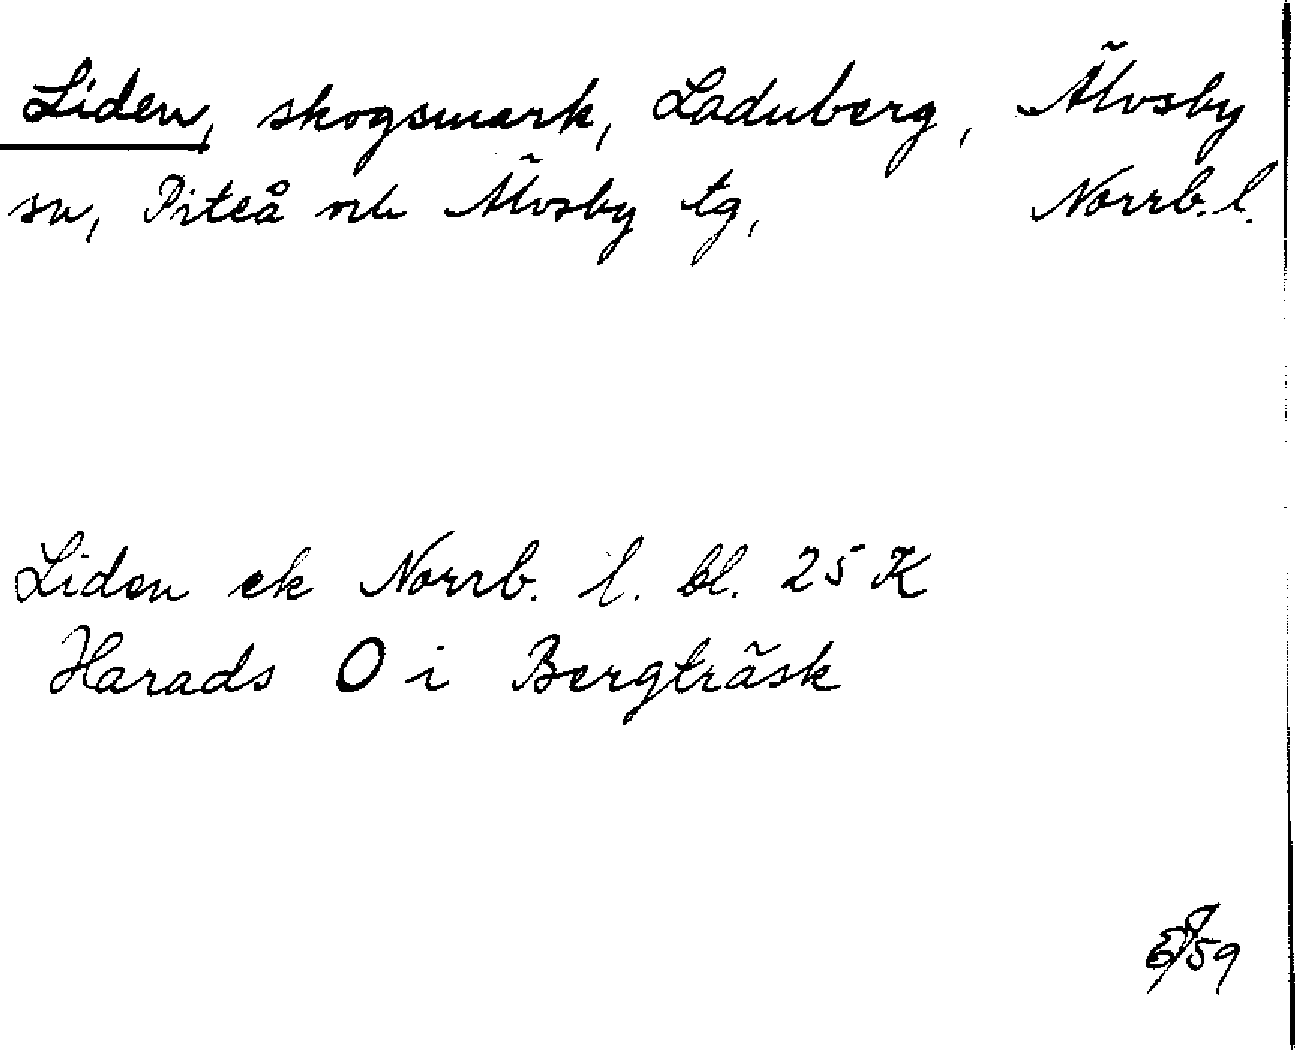 Liden, skogsmark, Laduberg, Älvsby
sn, Piteå Älvsby tg, Norrb. l.
Liden ek Norrb. l. bl. 25 K
Harads O i Bergträsk